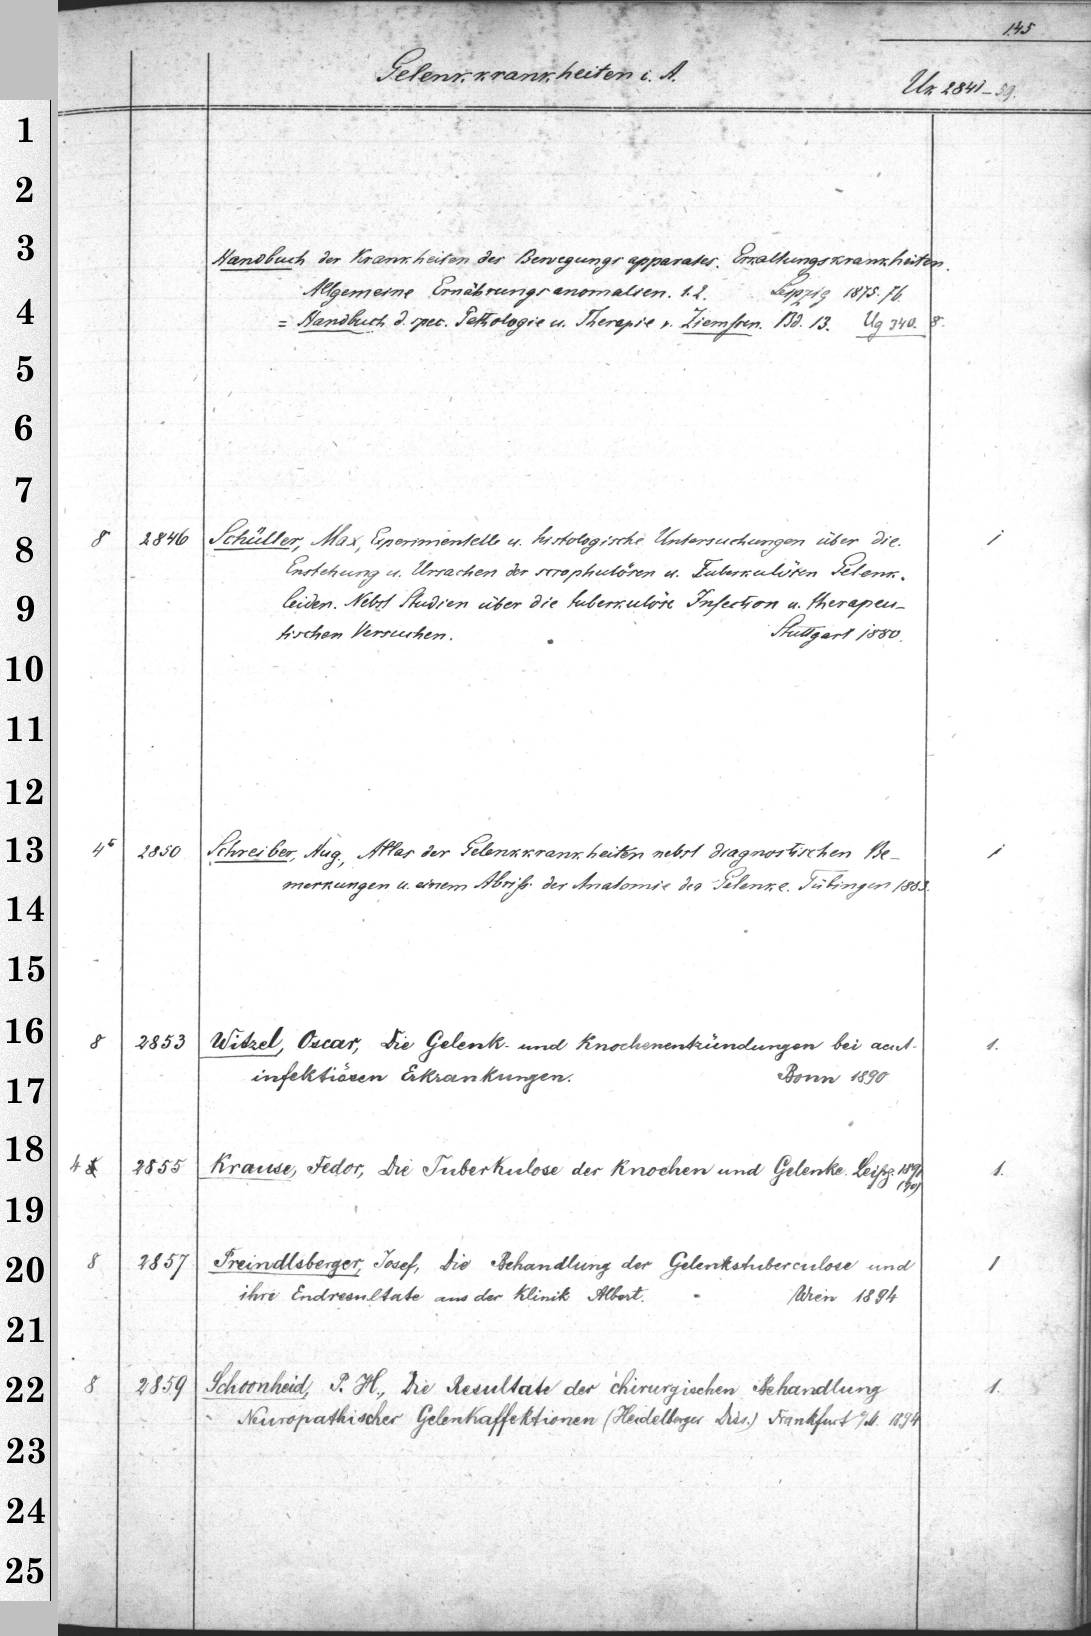 145
Gelenkkrankheiten i. A.
Uk 2841-59.
1
2
3
Handbuch der Krankheiten des Bewegungsapparates. Erkaltungskrankheiten.
Allgemeine Ernährungsanomalien. 1.2. Leipzig 1875. 76.
4
= Handbuch d. spec. Pathologie u. Therapie v. Ziemssen. Bd. 13. Ug 340. 8.
5
6
7
8
8 2846 Schüller, Max, Experimentelle u. histologische Untersuchungen über die 1
Enstehung u. Ursachen der scrophulösen u. Tuberkulösen Gelenk-
9
leiden. Nebst Studien über die tuberkulöse Infection u. therapeu-
tischen Versuchen. Stuttgart 1880.
10
11
12
13
4° 2850 Schreiber, Aug., Atlas der Gelenkkrankheiten nebst diagnostischen Be- 1
merkungen u. einem Abriß der Anatomie der Gelenke. Tübingen 1883.
14
15
16
8 2853 Witzel, Oscar, Die Gelenk- und Knochenentzündungen bei acut- 1.
infektiösen Erkrankungen. Bonn 1890
17
18
4 2855 Krause, Fedor, Die Tuberkulose der Knochen und Gelenke. Leipz. 1891 1.
19
20
8 2857 Preindlsberger, Josef, Die Behandlung der Gelenkstuberculose und 1
ihre Endresultate aus der Klinik Albert. Wien 1894
21
22
8 2859 Schoonheid, P. H., Die Resultate der chirurgischen Behandlung 1.
Neuropathischer Gelenkaffektionen (Heidelberger Diss.) Frankfurt a/M. 1894
23
24
25